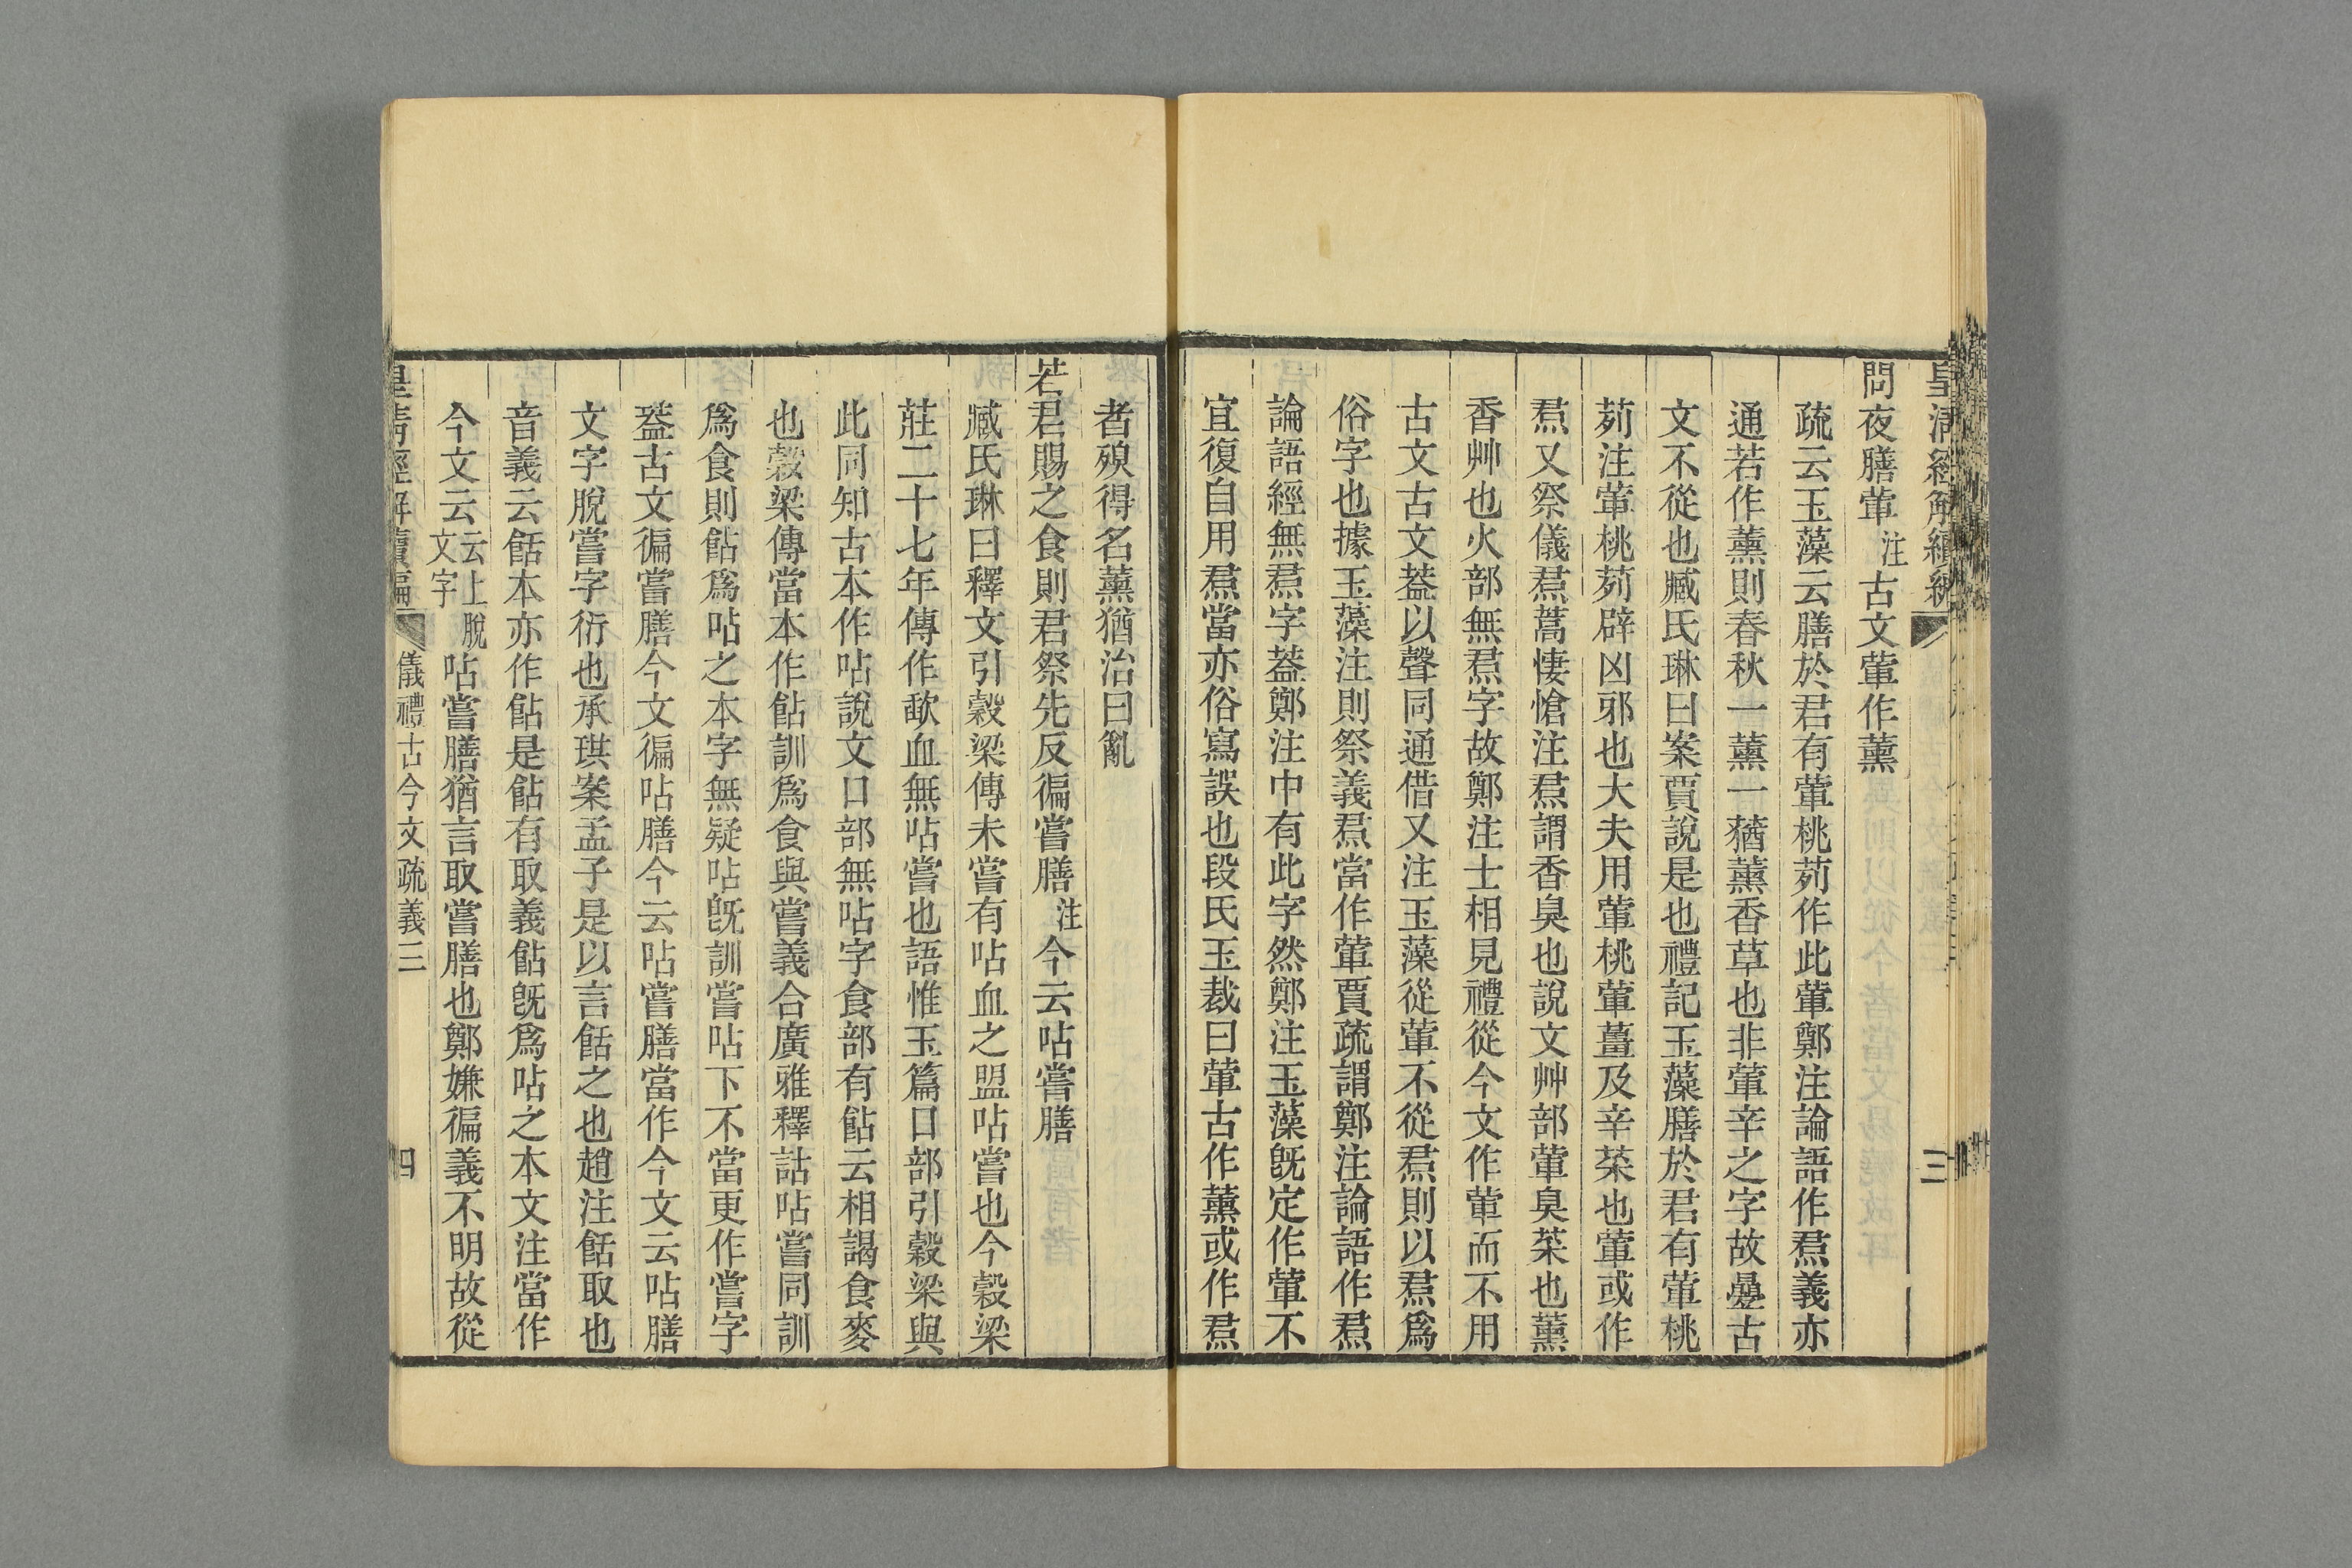 皇清經解續編
三
問夜膳葷注古文葷作薰
疏云玉藻云膳於君有葷桃茢作此葷鄭注論語作焄義亦
通若作薰則春秋一薰一蕕薰香草也非葷辛之字故曡古
文不從也臧氏琳曰案賈說是也禮記玉藻膳於君有葷桃
茢注葷桃茢辟凶邪也大夫用葷桃葷薑及辛菜也葷或作
焄又祭儀焄蒿悽愴注焄謂香臭也說文艸部葷臭菜也薰
香艸也火部無焄字故鄭注士相見禮從今文作葷而不用
古文古文葢以聲同通借又注玉藻從葷不從焄則以焄爲
俗字也據玉藻注則祭義焄當作葷賈疏謂鄭注論語作焄
論語經無焄字葢鄭注中有此字然鄭注玉藻旣定作葷不
宜復自用焄當亦俗寫誤也段氏玉裁曰葷古作薰或作焄
者殠得名薰猶治曰亂
若君賜之食則君祭先反徧嘗膳注今云呫嘗膳
臧氏琳曰釋文引穀梁傳未嘗有呫血之盟呫嘗也今穀梁
莊二十七年傳作歃血無呫嘗也語惟玉篇口部引穀梁與
此同知古本作呫說文口部無呫字食部有䬯云相謁食麥
也穀梁傳當本作䬯訓爲食與嘗義合廣雅釋詁呫嘗同訓
爲食則䬯爲呫之本字無疑呫旣訓嘗呫下不當更作嘗字
葢古文徧嘗膳今文徧呫膳今云呫嘗膳當作今文云呫膳
文字脫嘗字衍也承珙案孟子是以言餂之也趙注餂取也
音義云餂本亦作䬯是䬯有取義䬯旣爲呫之本文注當作
今文云云上脫文字呫嘗膳猶言取嘗膳也鄭嫌徧義不明故從
皇清經解續編 儀禮古今文疏義三 四